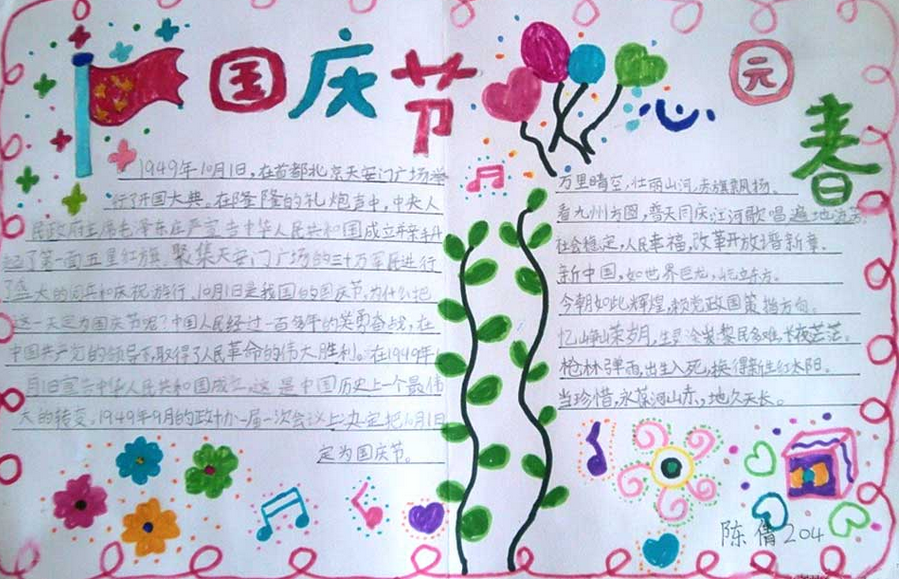 国庆节
1949年10月1日,在首都北京天安门广场举
行了开国大典,在隆隆的礼炮声中,中央人
民政府主席毛泽东庄严宣告中华人民共和国成立并亲手升
起了第一面五星红旗。聚集天安门广场的三十万军民进行
了盛大的阅兵和庆祝游行。10月1日是我国的国庆节,为什么把
这一天定为国庆节呢?中国人民经过一百多年的英勇奋战,在
中国共产党的领导下,取得了人民革命的伟大胜利。在1949年10
月1日宣告中华人民共和国成立。这是中国历史上一个最伟
大的转变。1949年9月的政协一届一次会议上决定把10月1日
定为国庆节。
心元春
万里晴空,壮丽山河,赤旗飘扬。
看九州方圆,普天同庆江河歌唱遍地
社会稳定,人民幸福,改革开放谱新章。
新中国,如世界巨龙,屹立东方。
今朝如此辉煌,赖党政国策指方向。
忆岁月,黎民多难,长夜茫茫。
枪林弹雨,出生入死,换得新生红太阳。
当珍惜,永葆河山赤,地久天长。
陈倩204